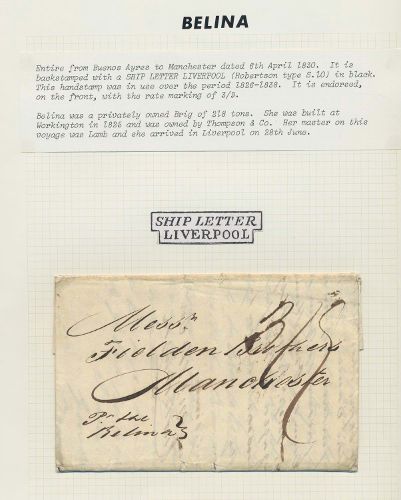 BELINA
Entire from Buenos Ayres to Manchester dated 6th April 1830. It is
backstamped with a SHIP LETTER LIVERPOOL (Robertson type S.10) in black.
This handstamp was in use over the period 1826-1838. It is endorsed,
on the front, with the rate marking of 3/8.
Belina was a privately owned Brig of 218 tons. She was built at
Workington in 1826 and was owned by Thompson & Co. Her master on this
voyage was Lamb and she arrived in Liverpool on 28th June.
SHIP LETTER
LIVERPOOL
Messrs
Fielden Brothers
Manchester
Pr the
Belina